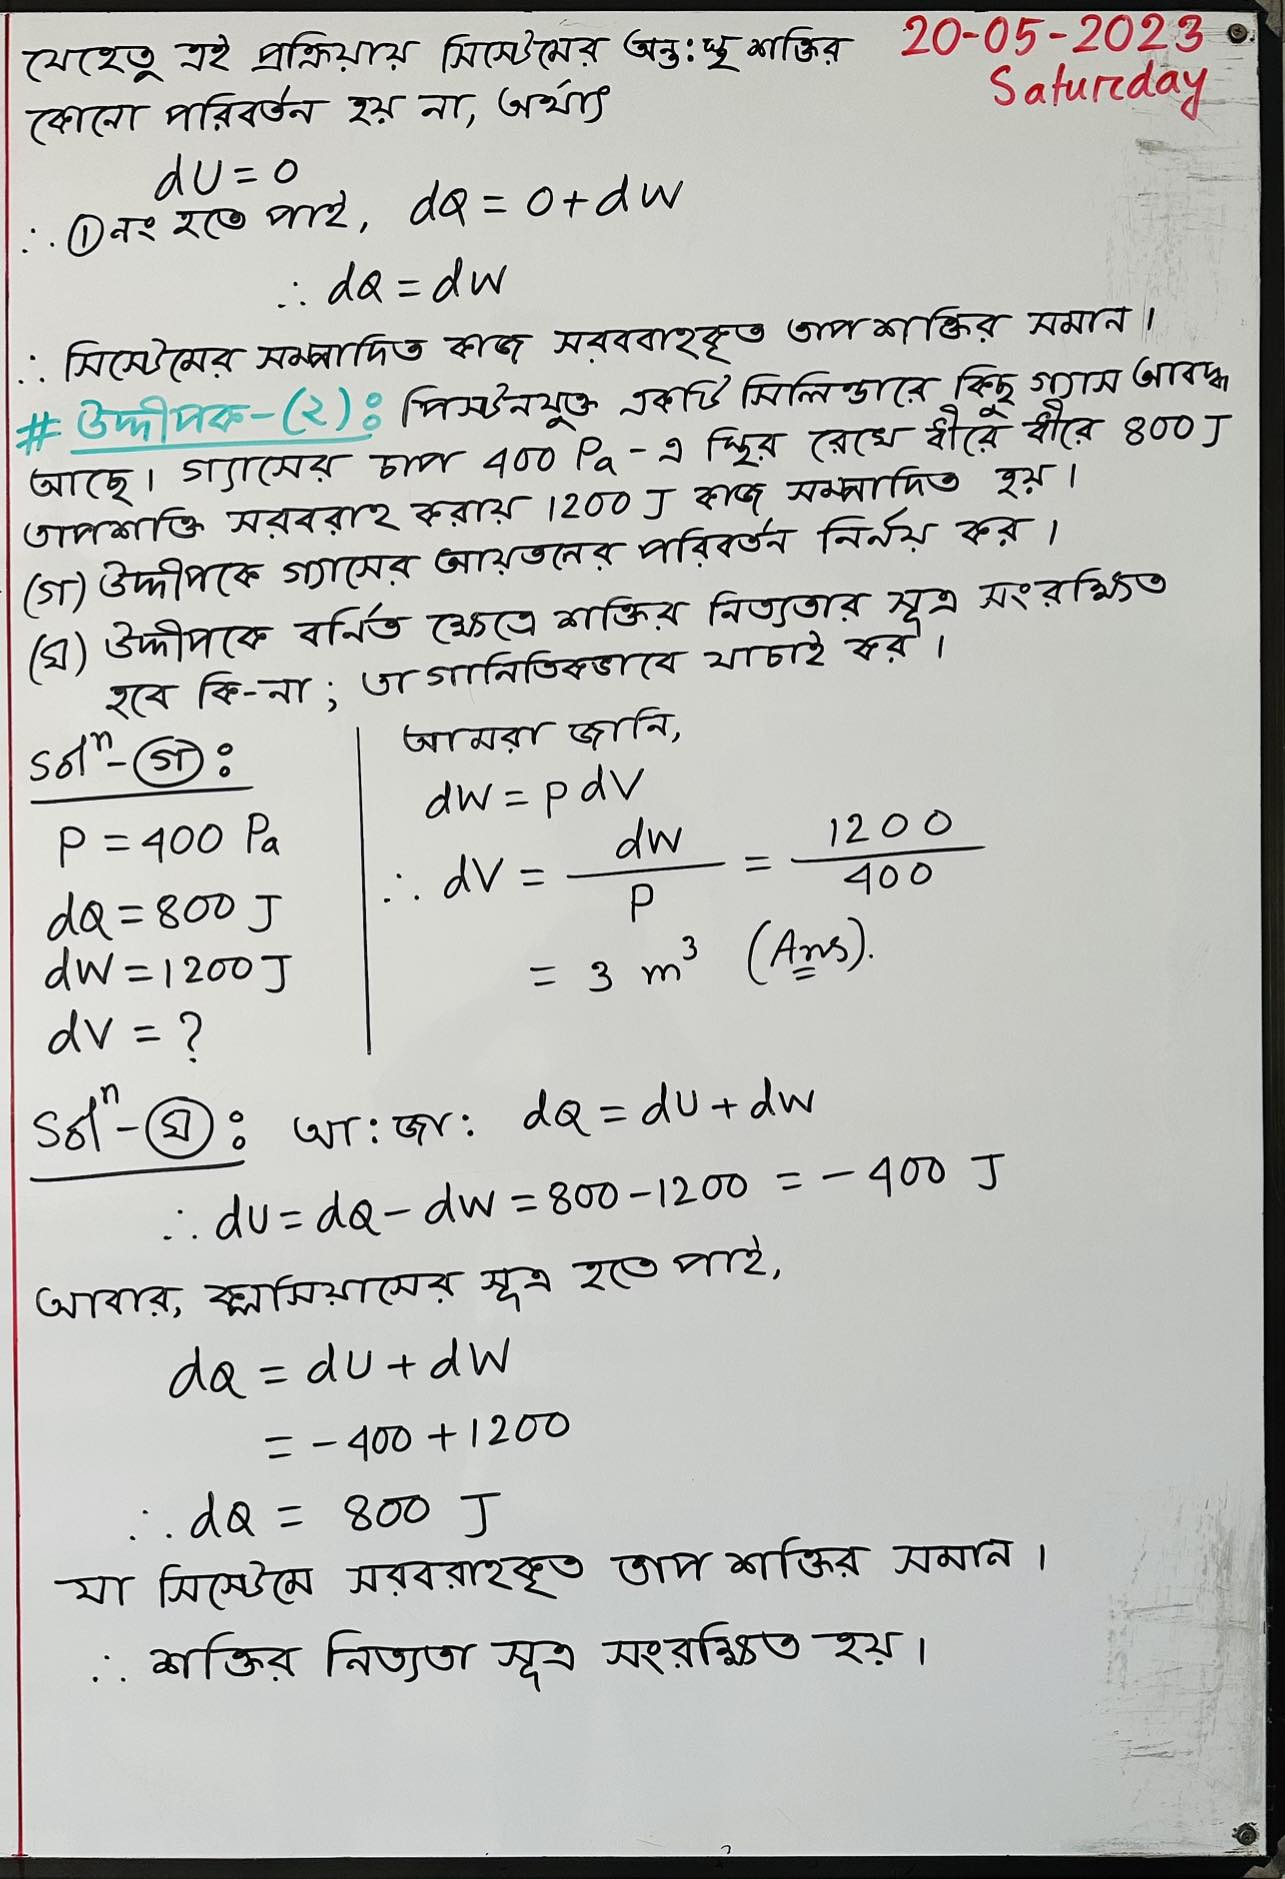 যেহেতু এই প্রক্রিয়ায় সিস্টেমের অন্ত:স্থ শক্তির
20-05-2023
Saturday
কোনো পরিবর্তন হয় না, অর্থাৎ
dU = 0
∴ ①নং হতে পাই, dQ = 0 + dW
∴ dQ = dW
∴ সিস্টেমের সম্পাদিত কাজ সরববাহকৃত তাপ শক্তির সমান।
# উদ্দীপক-(২): পিস্টনযুক্ত একটি সিলিন্ডারে কিছু গ্যাস আবদ্ধ
আছে। গ্যাসের চাপ 400 Pa-এ স্থির রেখে ধীরে ধীরে 800 J
তাপশক্তি সরবরাহ করায় 1200 J কাজ সম্পাদিত হয়।
(গ) উদ্দীপকে গ্যাসের আয়তনের পরিবর্তন নির্নয় কর।
(ঘ) উদ্দীপকে বর্নিত ক্ষেত্রে শক্তির নিত্যতার সূত্র সংরক্ষিত
হবে কি-না; তা গানিতিকভাবে যাচাই কর।
Solⁿ-(গ):
P = 400 Pa
dQ = 800 J
dW = 1200 J
dV = ?
আমরা জানি,
dW = P dV
∴ dV = dW/P = 1200/400
= 3 m³ (Ans).
Solⁿ-(ঘ): আ: জা: dQ = dU + dW
∴ dU = dQ - dW = 800 - 1200 = - 400 J
আবার, ক্লসিয়াসের সূত্র হতে পাই,
dQ = dU + dW
= - 400 + 1200
∴ dQ = 800 J
যা সিস্টেমে সরবরাহকৃত তাপ শক্তির সমান।
∴ শক্তির নিত্যতা সূত্র সংরক্ষিত হয়।